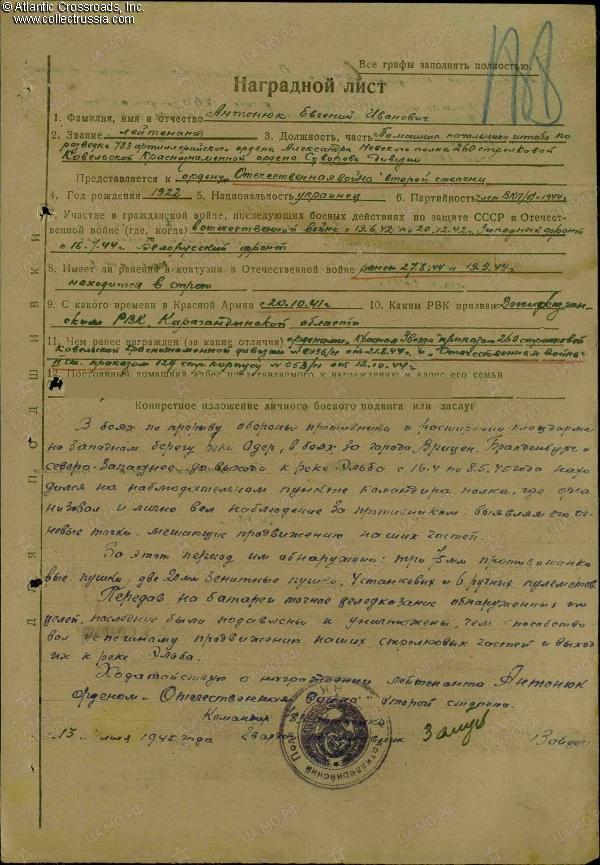 © Atlantic Crossroads, Inc.
www.collectrussia.com
Все графы заполнять полностью.
188
Наградной лист
1. Фамилия, имя и отчество Антонюк Евгений Иванович
2. Звание лейтенант 3. Должность, часть Помощник начальника штаба по
разведке 783 артиллерийского ордена Александра Невского полка 260 стрелковой
Ковельской Краснознаменной ордена Суворова дивизии
Представляется к ордену „Отечественная война" второй степени
4. Год рождения 1922 5. Национальность украинец 6. Партийность член ВКП/б/-1944г.
7. Участие в гражданской войне, последующих боевых действиях по защите СССР и Отечест-
венной войне (где, когда) в отечественной войне с 19.6.42 по 20.12.42г. Западный фронт
с 16.7.44г. Белорусский фронт
8. Имеет ли ранения и контузии в Отечественной войне ранен 27.8.44 и 19.9.44г.
находится в строю
9. С какого времени в Красной Армии с 20.10.41г. 10. Каким РВК призван
РВК, Карагандинской области
11. Чем ранее награжден (за какие отличия) орденами „Красная Звезда" приказом 260 стрелковой
Ковельской Краснознаменной дивизии от и „Отечественная война"
приказом 125 стр. корпуса № 053/н от 12.10.44г.
12. Постоянный домашний адрес представляемого к награждению и адрес его семьи
ДЛЯ ПОДШИВКИ
Конкретное изложение личного боевого подвига или заслуг
В боях по прорыву обороны противника и расширении плацдарма
на западном берегу реки Одер, в боях за города Врицен, Бранденбург и
северо-западнее до выхода к реке Эльба с 16.4 по 8.5.45 года нахо-
дился на наблюдательном пункте командира полка, где орга-
низовал и лично вел наблюдение за противником, выявляя его ог-
невые точки, мешающие продвижению наших частей.
За этот период им обнаружено: три 75мм противотанко-
вые пушки, две 20мм зенитные пушки, 4 станковых и 6 ручных пулеметов.
Передав на батареи точное целеуказание обнаруженных им
целей, последние были подавлены и уничтожены, чем способство-
вал успешному продвижению наших стрелковых частей и выход
их к реке Эльба.
Ходатайствую о награждении лейтенанта Антонюк
орденом „Отечественная Война" второй степени.
Командир полка
13 мая 1945 года Гвардии
ЦАМО.РФ